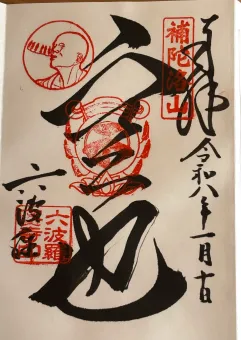 奉拝
令和八年一月十日
補陀洛山
空也
六波羅
六波羅